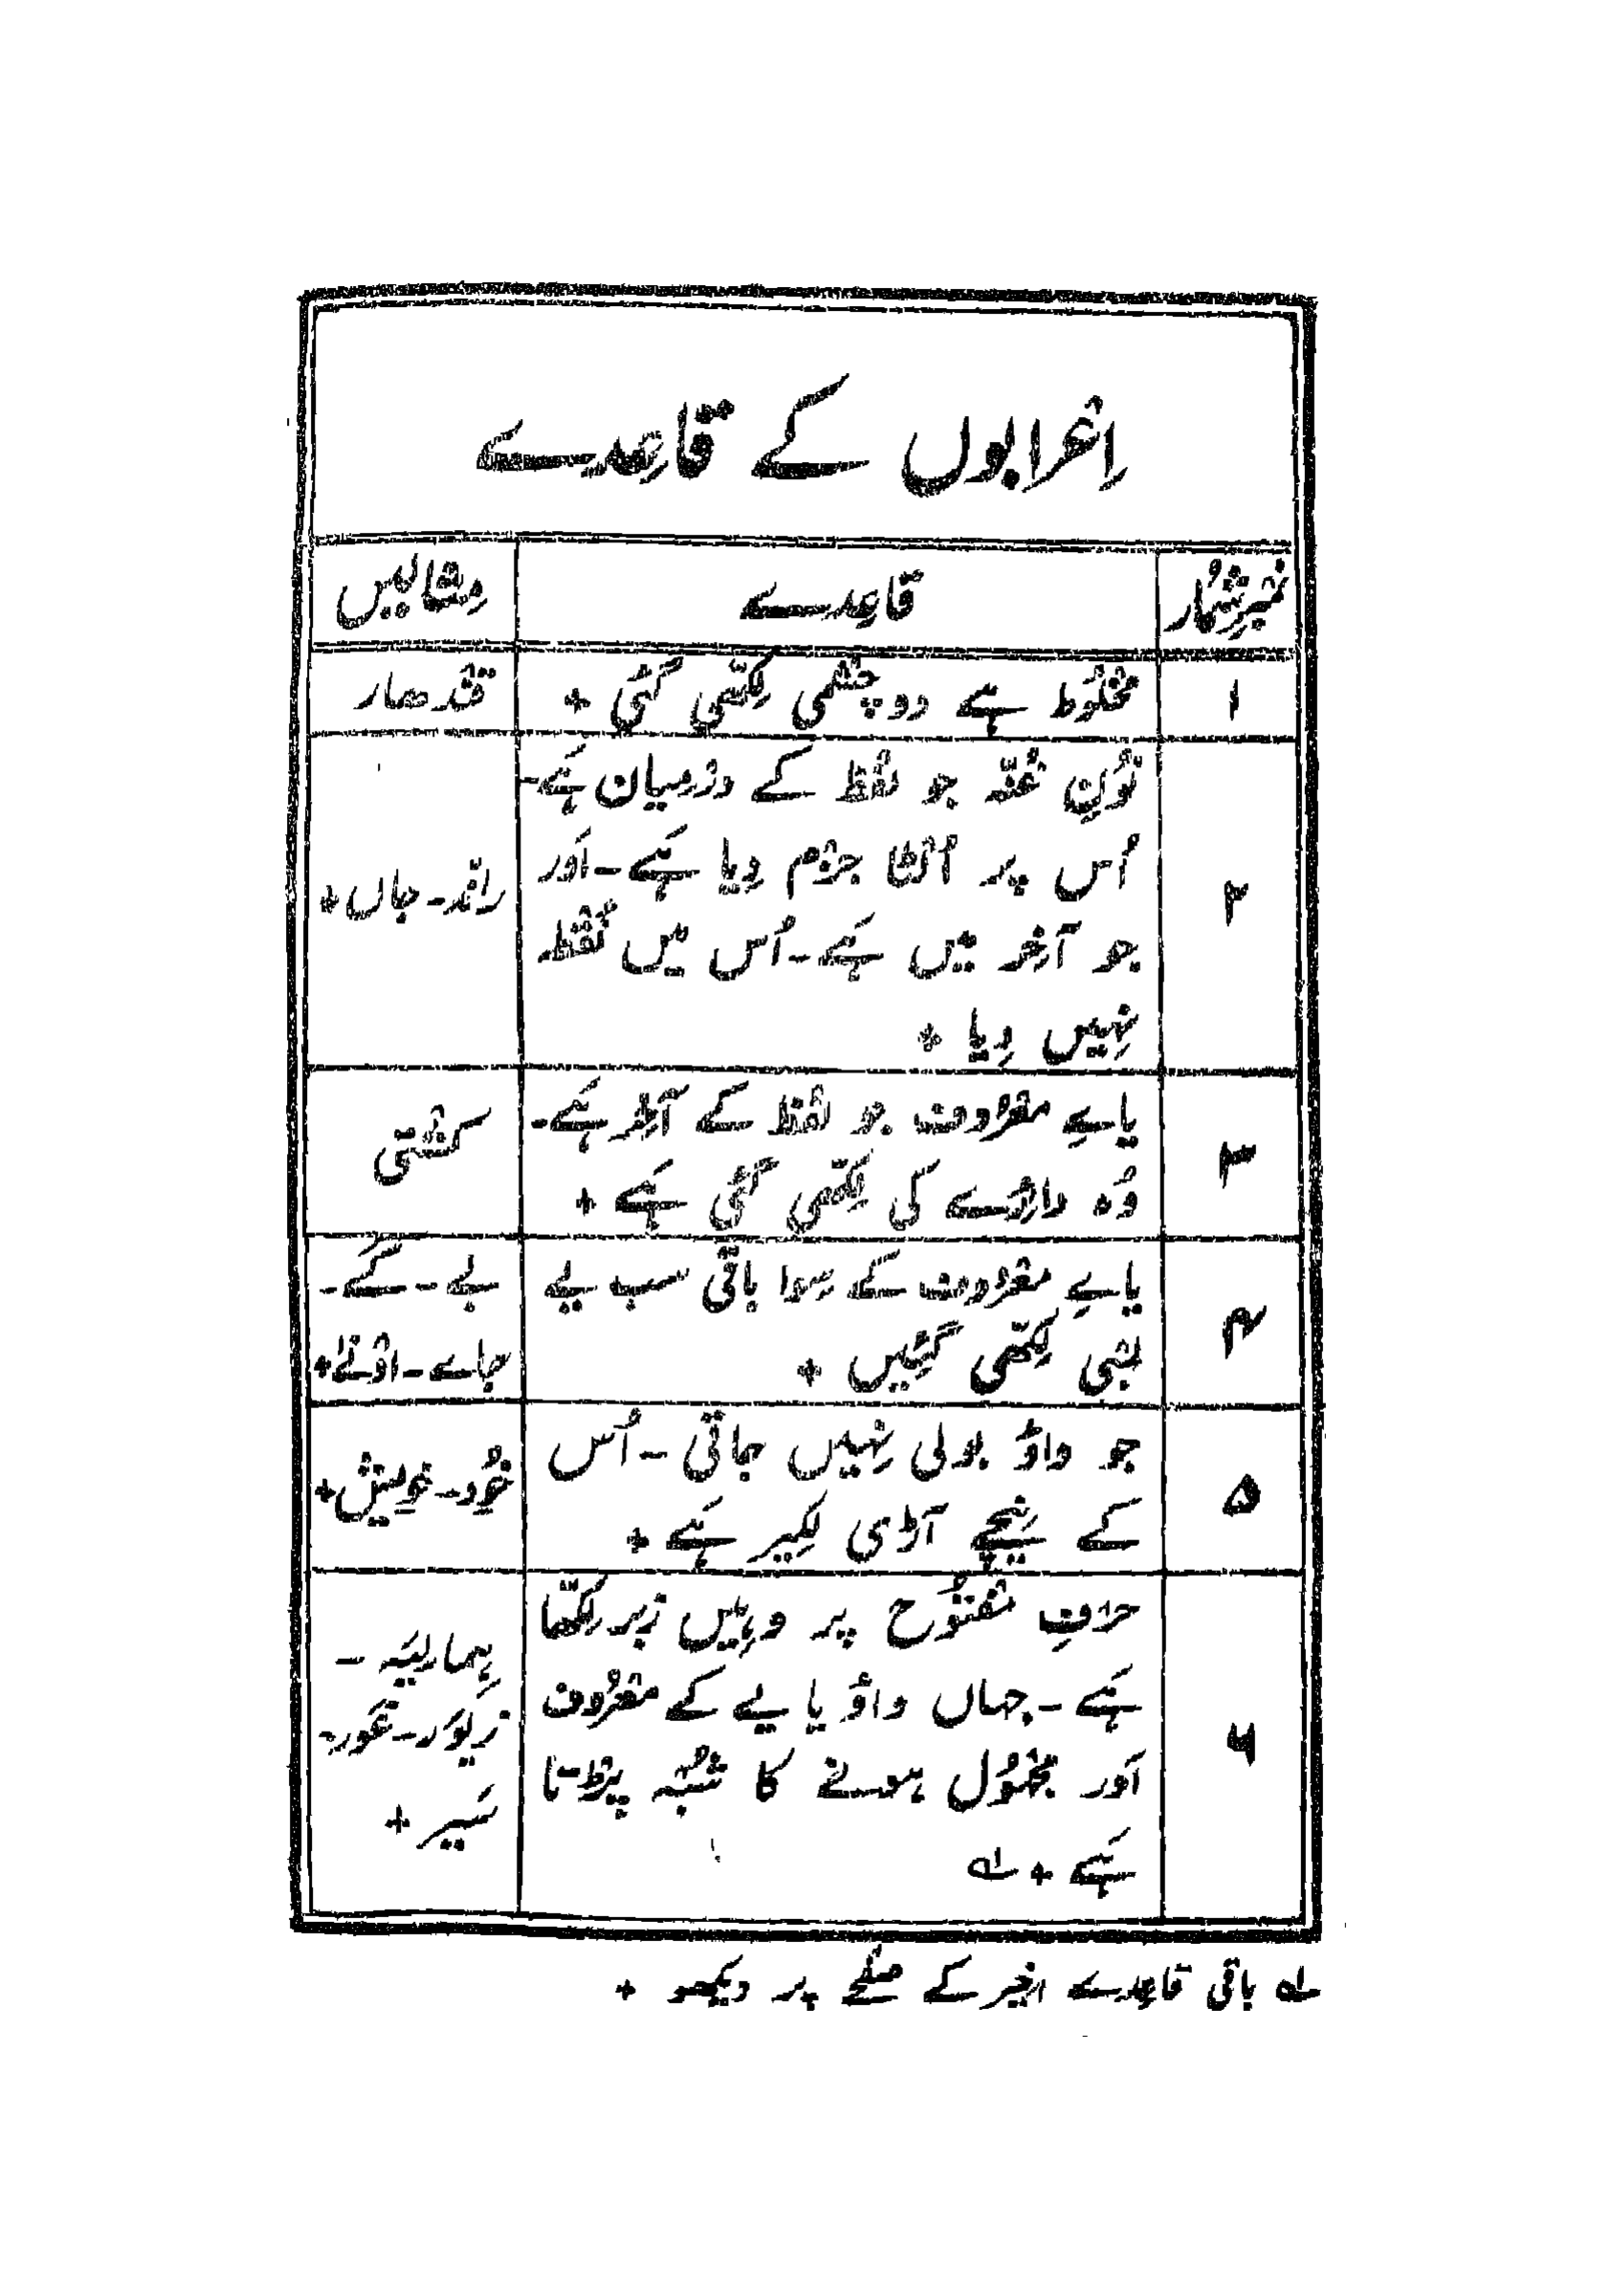 اِعْرابوں کے قاعِدے
نمبرِشُمار قاعِدے مِثالیں
۱ مخلُوط ہے دوچشمی لِکّھی گئی + قندھار
۲ نُونِ غُنّہ جو لفْظ کے درْمیان ہَے۔
اُس پر اُلٹا جزْم دِیا ہَے۔ اَور
جو آخِر میں ہَے۔ اُس میں نُقْطہ
نہِیں دِیا +
راند۔ جاں +
۳ یاےِ معْرُوف جو لفْظ کے آخِر ہَے۔
وُہ دائِرے کی لِکّھی گئی ہَے +
کشْتی
۴ یاےِ معْرُوف کے سِوا باقی سب یے
لنبی لِکّھی گئِیں +
لے۔ گے۔
جاے۔
۵ جو واوْ بولی نہِیں جاتی۔ اُس
کے نِیچے آڑی لکِیر ہَے +
خُود۔ خویش +
۶ حرْفِ مفْتُوح پر وہِیں زبر لِکّھا
ہَے۔ جہاں واوْ یا یے کے معْرُوف
اَور مجْہُول ہونے کا شُبْہ پڑتا
ہَے + لہ
ہِمالیَہ۔
زیوَر۔ غَور۔
سَیر +
لہ باقی قاعِدے اخِیر کے صفْحے پر دیکھو +